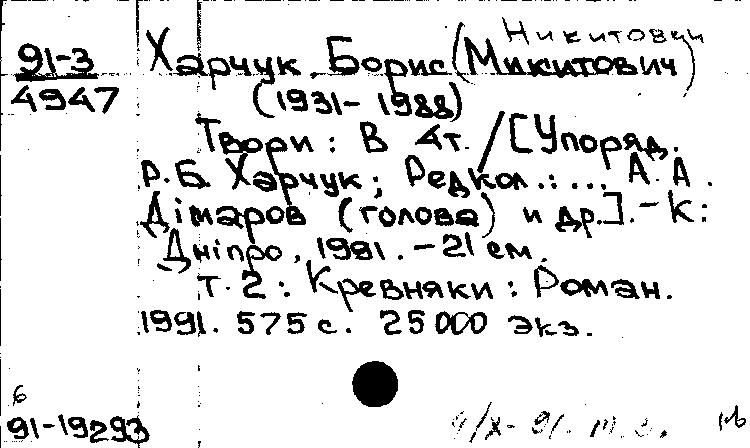 Никитович
91-3 Харчук, Борис (Микитович)
4947 (1931-1988)
Твори: В 4т. / [Упоряд.
Р.Б. Харчук; Редкол.: ... А.А.
Дімаров (голова) и др.]. - К:
Дніпро, 1991. - 21 см.
Т. 2: Кревняки: Роман.
1991. 575 с. 25000 экз.
б
91-19293